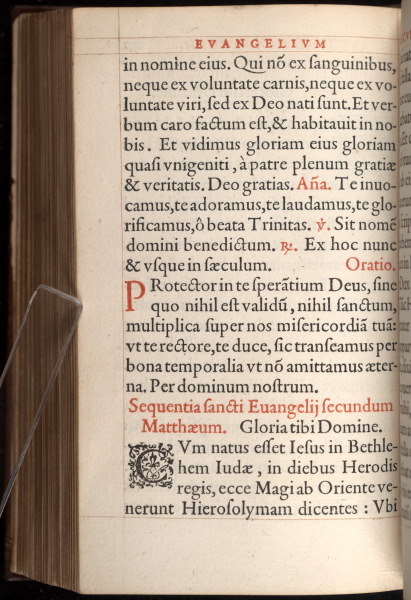 EVANGELIVM
in nomine eius. Qui nõ ex ſanguinibus,
neque ex voluntate carnis,neque ex vo-
luntate viri,ſed ex Deo nati ſunt.Et ver-
bum caro factum eſt,& habitauit in no-
bis. Et vidimus gloriam eius gloriam
quaſi vnigeniti, à patre plenum gratiæ
& veritatis. Deo gratias. Aña. Te inuo-
camus,te adoramus,te laudamus,te glo-
rificamus,ô beata Trinitas. ℣. Sit nomẽ
domini benedictum. ℞. Ex hoc nunc
& vſque in ſæculum. Oratio.
PRotector in te ſperãtium Deus, ſine
quo nihil eſt validũ, nihil ſanctum,
multiplica ſuper nos miſericordiã tuã:
vt te rectore,te duce, ſic tranſeamus per
bona temporalia vt nõ amittamus æter-
na. Per dominum noſtrum.
Sequentia ſancti Euangelij ſecundum
Matthæum. Gloria tibi Domine.
CVm natus eſſet Ieſus in Bethle-
hem Iudæ, in diebus Herodis
regis, ecce Magi ab Oriente ve-
nerunt Hieroſolymam dicentes : Vbi